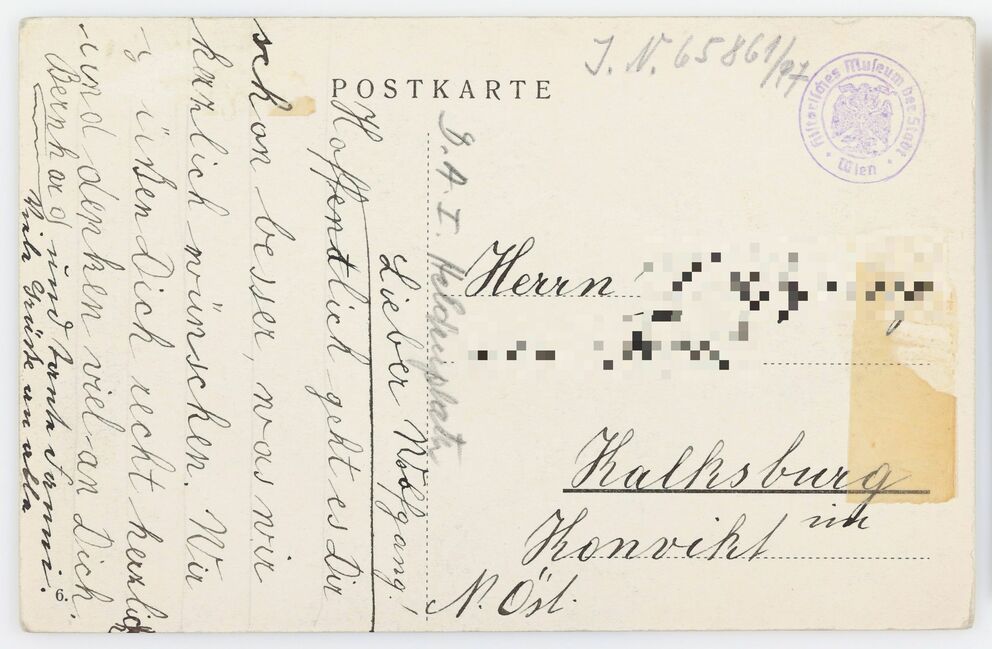 POSTKARTE
J. N. 65861/97
Historisches Museum der Stadt
Wien
D. A. I. Heldenplatz
Lieber Wolfgang!
Hoffentlich geht es Dir
schon besser, was wir
herzlich wünschen. Wir
grüßen Dich recht herzlich
und denken viel an Dich.
Bernhard und tante Fanni.
Viele Grüße an alle
Herrn
Kalksburg
Konvikt im
N. Öst.
6.